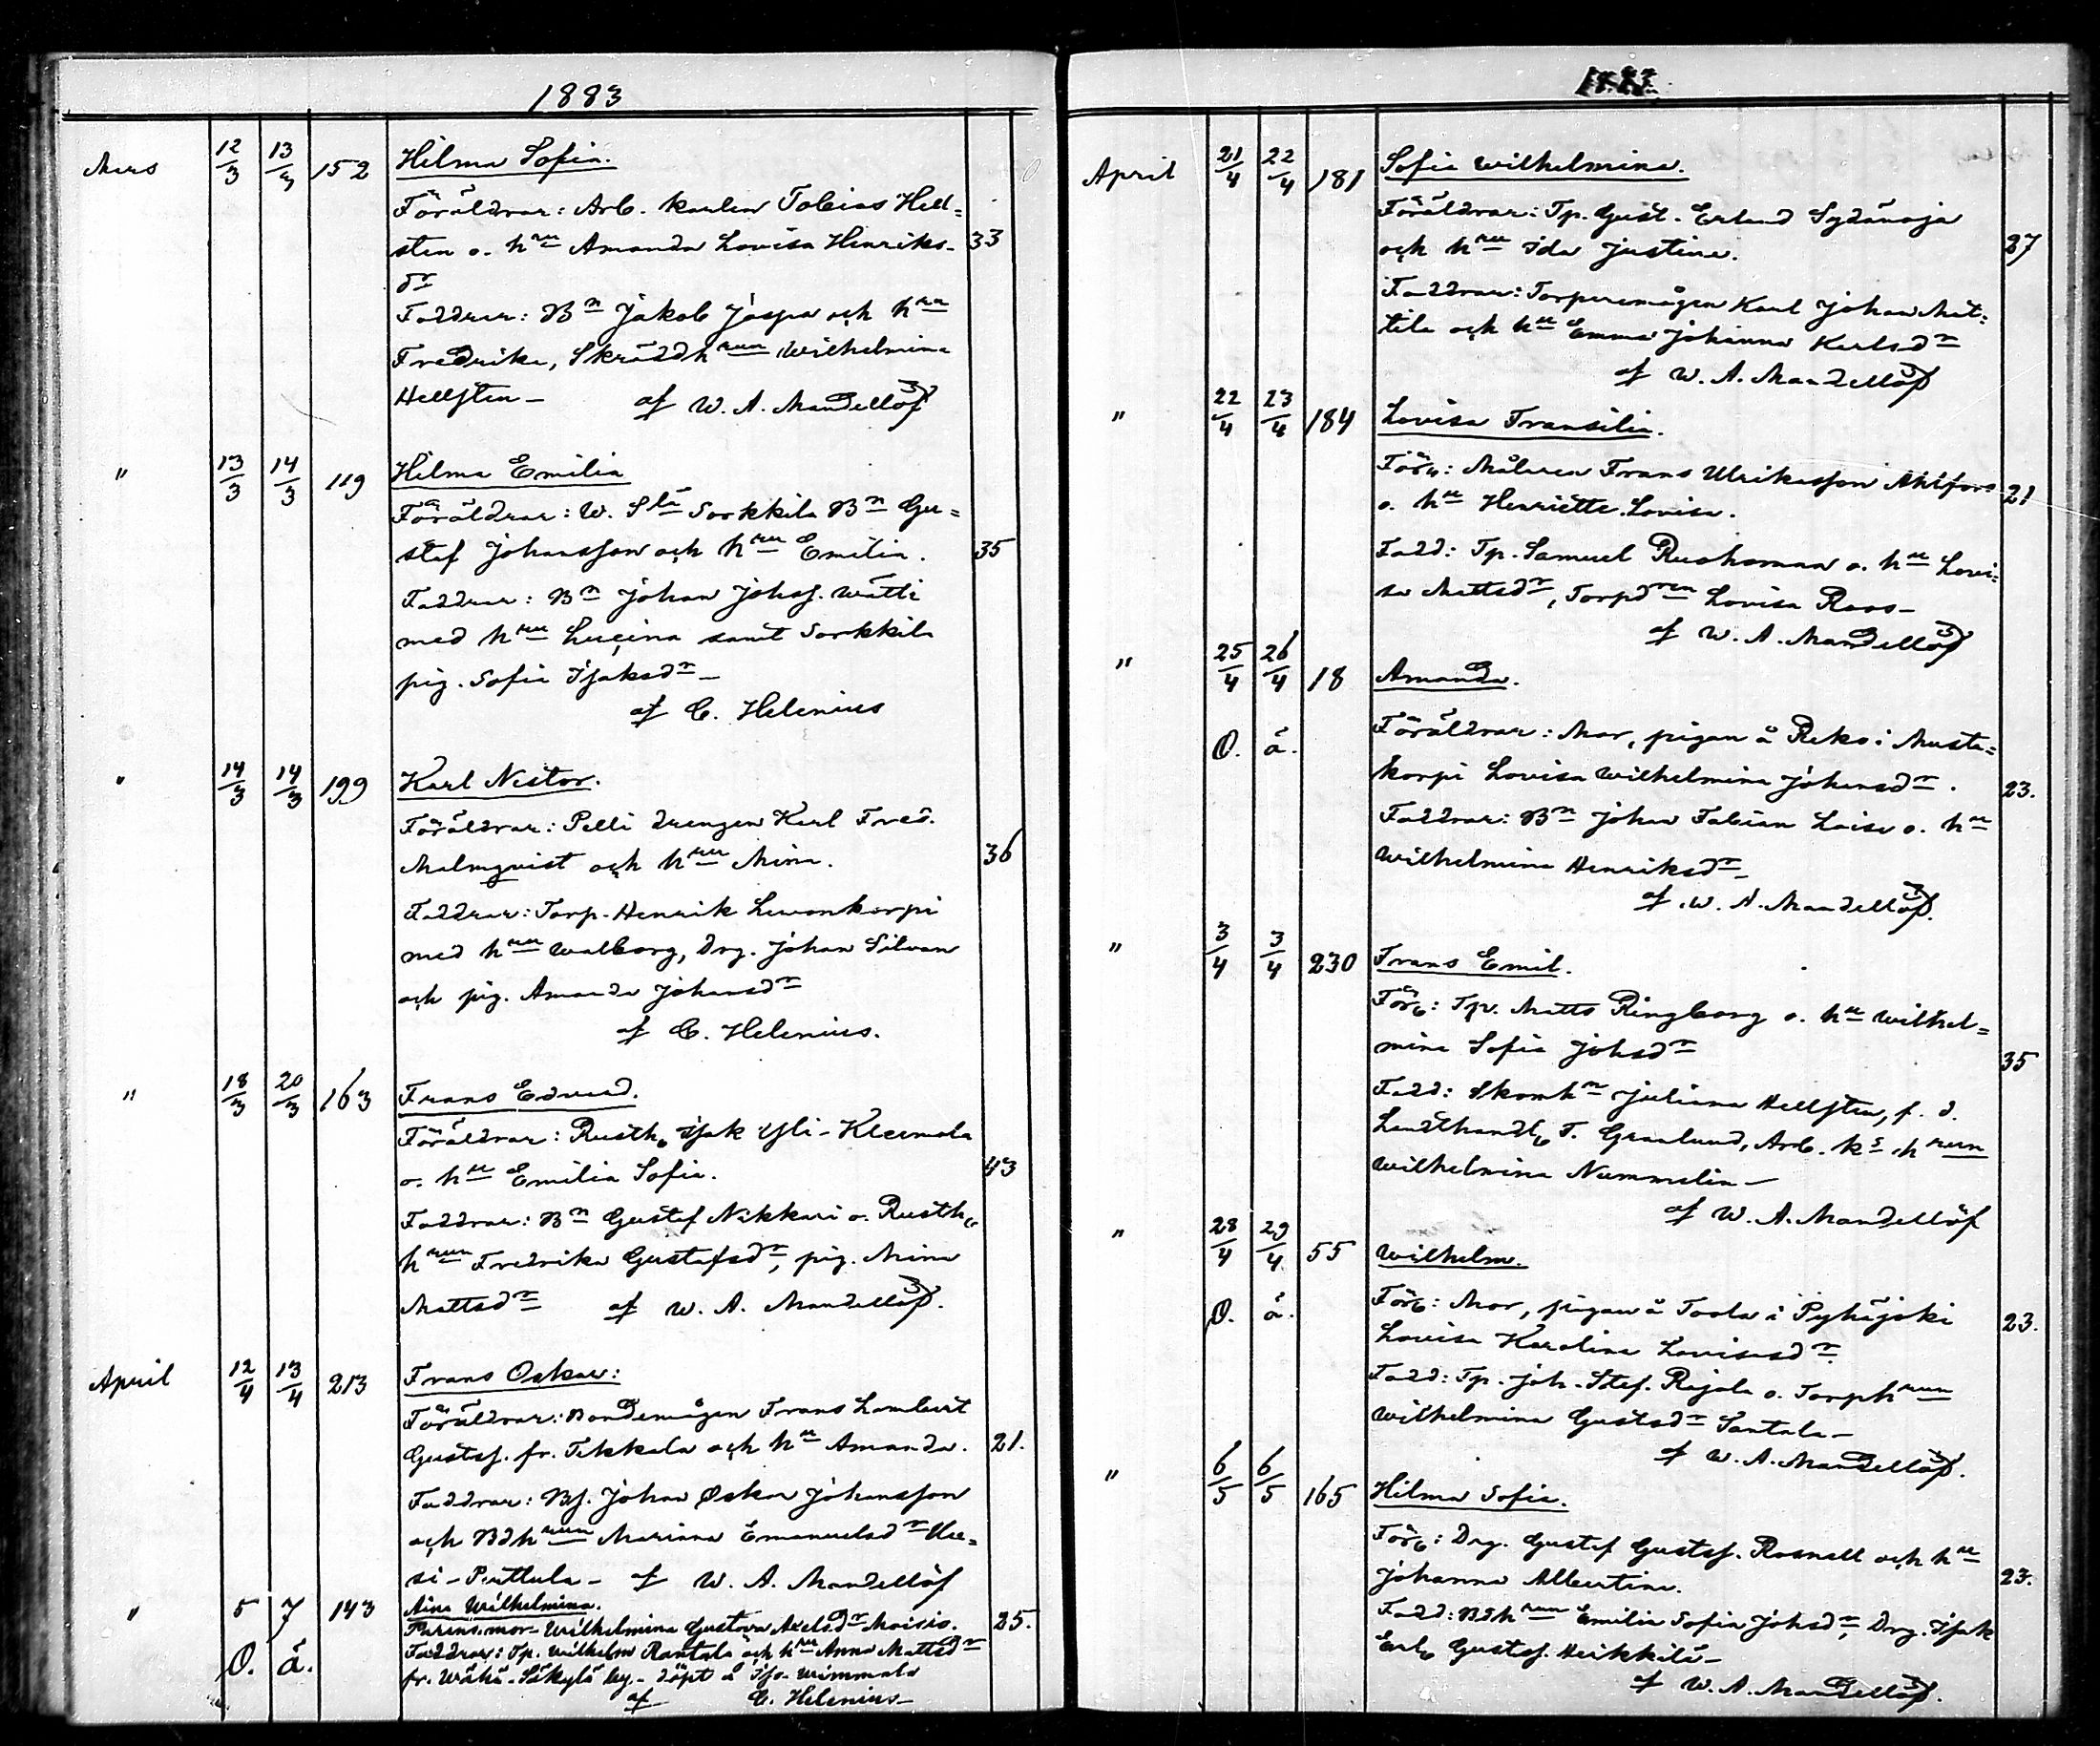 1883
Mars 12/3 13/3 152 Hilma Sofia.
Föräldrar: Arb. karlen Tobias Hell=
sten o. hru Amanda Lovisa Henriks- 33
dr
Faddrar: Bn Jakob Jaspa och hru
Fredrika, Skräddhrun Wilhelmina
Hellsten – af W. A. Mandellöf
" 13/3 14/3 119 Hilma Emilia
Föräldrar: W. Slä Sorkkila Bn Gu=
staf Johansson och hru Emilia. 35
Faddrar: Bn Johan Johss. Wätti
med hru Lucina samt Sorkkila
pig. Sofia Isaksdr –
af C. Helenius
" 14/3 14/3 199 Karl Nestor.
Föräldrar: Pelli drengen Karl Fred.
Malmqvist och hru Mina. 36
Faddrar: Torp. Henrik Levonkorpi
med hru Walborg, Drg. Johan Silvan
och pig. Amanda Johansdr
af C. Helenius.
" 18/3 20/3 163 Frans Edvard.
Föräldrar: Rusth. Isak Yli-Kleemola
o. hu Emilia Sofia. 43
Faddrar: Bn Gustaf Nikkari o. Rusth.
hrun Fredrika Gustafsdr, pig. Mina
Mattsdr af W. A. Mandellöf.
April 12/4 13/4 213 Frans Oskar:
Föräldrar: Bondemågen Frans Lambert
Gustafs. fr. Tikkala och hu Amanda. 21.
Faddrar: Bs. Johan Oskar Johansson
och Bdhrun Mariana Emanuelsdr Uu=
si-Puttula – af W. A. Mandellöf
" 5 7 143 Aina Wilhelmina.
mor Wilhelmina Gustava Axelsdr Moisio. 25.
Faddrar: Tp. Wilhelm Rantala och hru Anna Mattsdr
O. ä. fr. Wähä-Säkylä by. – döpt å Iso-Wimmala
af C. Helenius –
April 21/4 22/4 181 Sofia Wilhelmina.
Föräldrar: Tp. Gust. Erland Sydänoja
och hru Ida Justina. 27
Faddrar: Torparemågen Karl Johan Mat=
tila och hu Emma Johanna Karlsdr
af W. A. Mandellöf
" 22/4 23/4 184 Lovisa Fransilia.
Förr: Målaren Frans Ulriksson Ahlfors 21
o. hu Henriette Lovisa.
Fadd: Tp. Samuel Ruohomaa o. hu Lovi=
sa Mattsdr, Torpdrn Lovisa Roos –
af W. A. Mandellöf
" 25/4 26/4 18 Amanda.
O. ä. Föräldrar: Mor, pigan å Reko i Musta=
korpi Lovisa Wilhelmina Johansdr. 23.
Faddrar: Bn Johan Fabian Laisi o. hu
Wilhelmina Henriksdr –
af W. A. Mandellöf.
" 3/4 3/4 230 Frans Emil.
Förr: Tp. Matts Ringborg o. hu Wilhel=
mina Sofia Johsdr 35
Fadd: Skomhn Juliana Hellsten, f. d.
Landthandl. T. Granlund, Arb. ks hrun
Wilhelmina Nummelin –
af W. A. Mandellöf
" 28/4 29/4 55 Wilhelm.
O. ä. Förr: Mor, pigan å Toola i Pyhäjoki 23.
Lovisa Karolina Lovisasdr.
Fadd: Tp. Joh. Stef. Rajala o. Torphrun
Wilhelmina Gustsdr Santala –
af W. A. Mandellöf.
" 6/5 6/5 165 Hilma Sofia.
Förr: Drg. Gustaf Gustafs. Rosnell och hu
Johanna Albertina. 23.
Fadd: Bdhrun Emilia Sofia Johsdr, Drg. Isak
Gustafs. Heikkilä –
af W. A. Mandellöf.